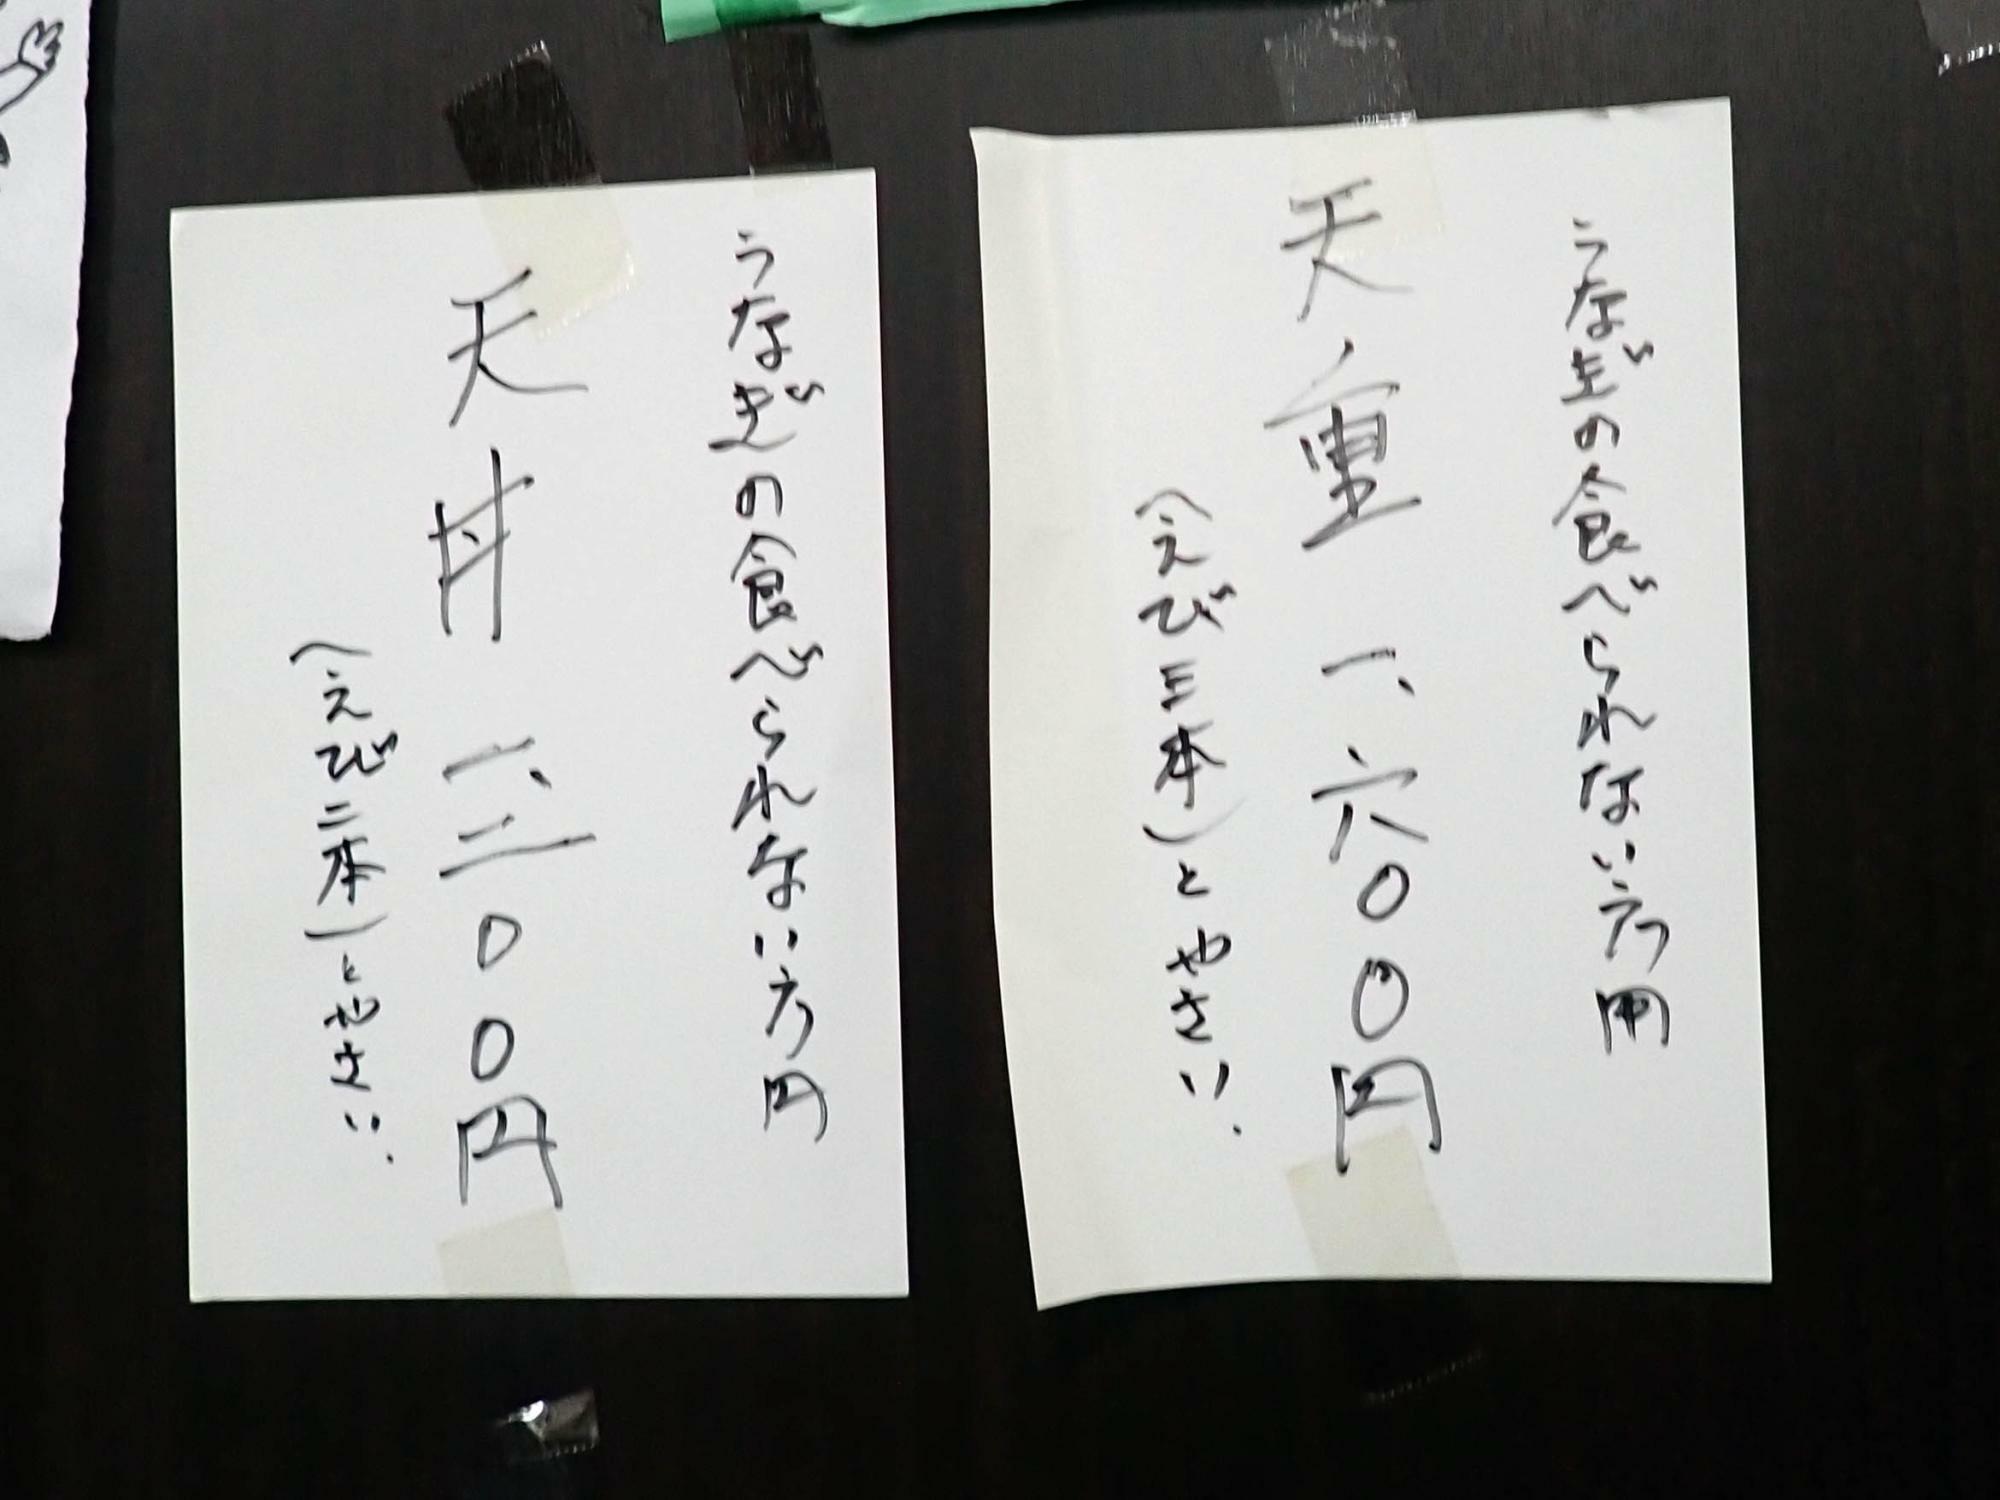 うなぎの食べられない方用
天重 一、六〇〇円
(えび三本)とやさい.
うなぎの食べられない方用
天丼 一、二〇〇円
(えび二本)とやさい.